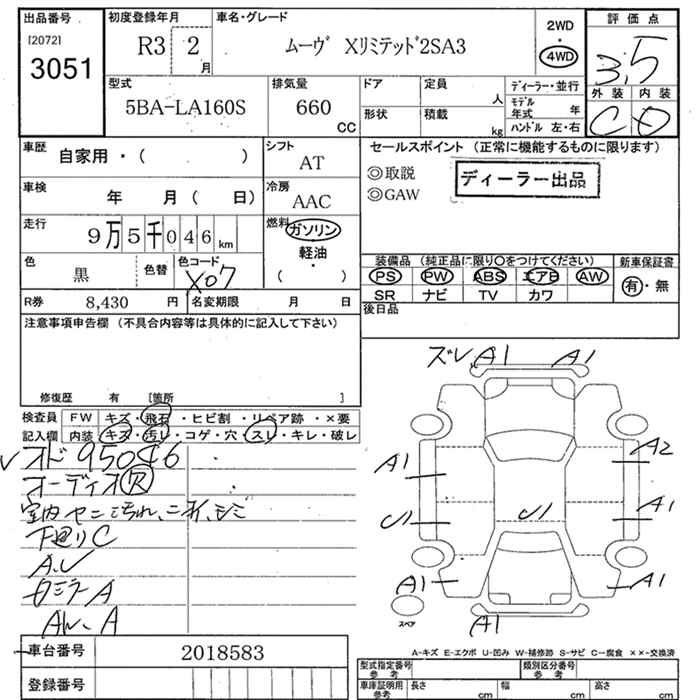 出品番号 初度登録年月 車名・グレード 2WD ・ 4WD 評価点
[2072] 3051 R3 2月 ムーヴ Xリミテッド2SA3 3.5
外装 内装
C D
型式 排気量 ドア 定員 人 ディーラー・並行
5BA-LA160S 660 CC 形状 積載 kg モデル年式 年
ハンドル 左・右
車歴 自家用・( ) シフト AT
セールスポイント (正常に機能するものに限ります)
◎取説
◎GAW
ディーラー出品
車検 年 月 ( 日) 冷房 AAC
走行 9万5千046km 燃料 ガソリン・軽油・( )
色 黒 色替 色コード X07
装備品 (純正品に限り○をつけてください) 新車保証書
PS PW ABS エアB AW 有・無
SR ナビ TV カワ
R券 8,430円 名変期限 月 日
後日品
注意事項申告欄 (不具合内容等は具体的に記入して下さい)
修復歴 有 [箇所 ]
検査員 FW キズ・飛石・ヒビ割・リペア跡・×要
記入欄 内装 キズ・汚レ・コゲ・穴・スレ・キレ・破レ
オド95046
オーディオR
下廻りC
ズレ A1 A1
A1 A2
U1 U1 A1
A1 A1
A1
スペア
A-キズ E-エクボ U-凹み W-補修跡 S-サビ C-腐食 ××-交換済
車台番号 2018583
登録番号
型式指定番号 参考 類別区分番号 参考
車庫証明用 参考 長さ cm 幅 cm 高さ cm